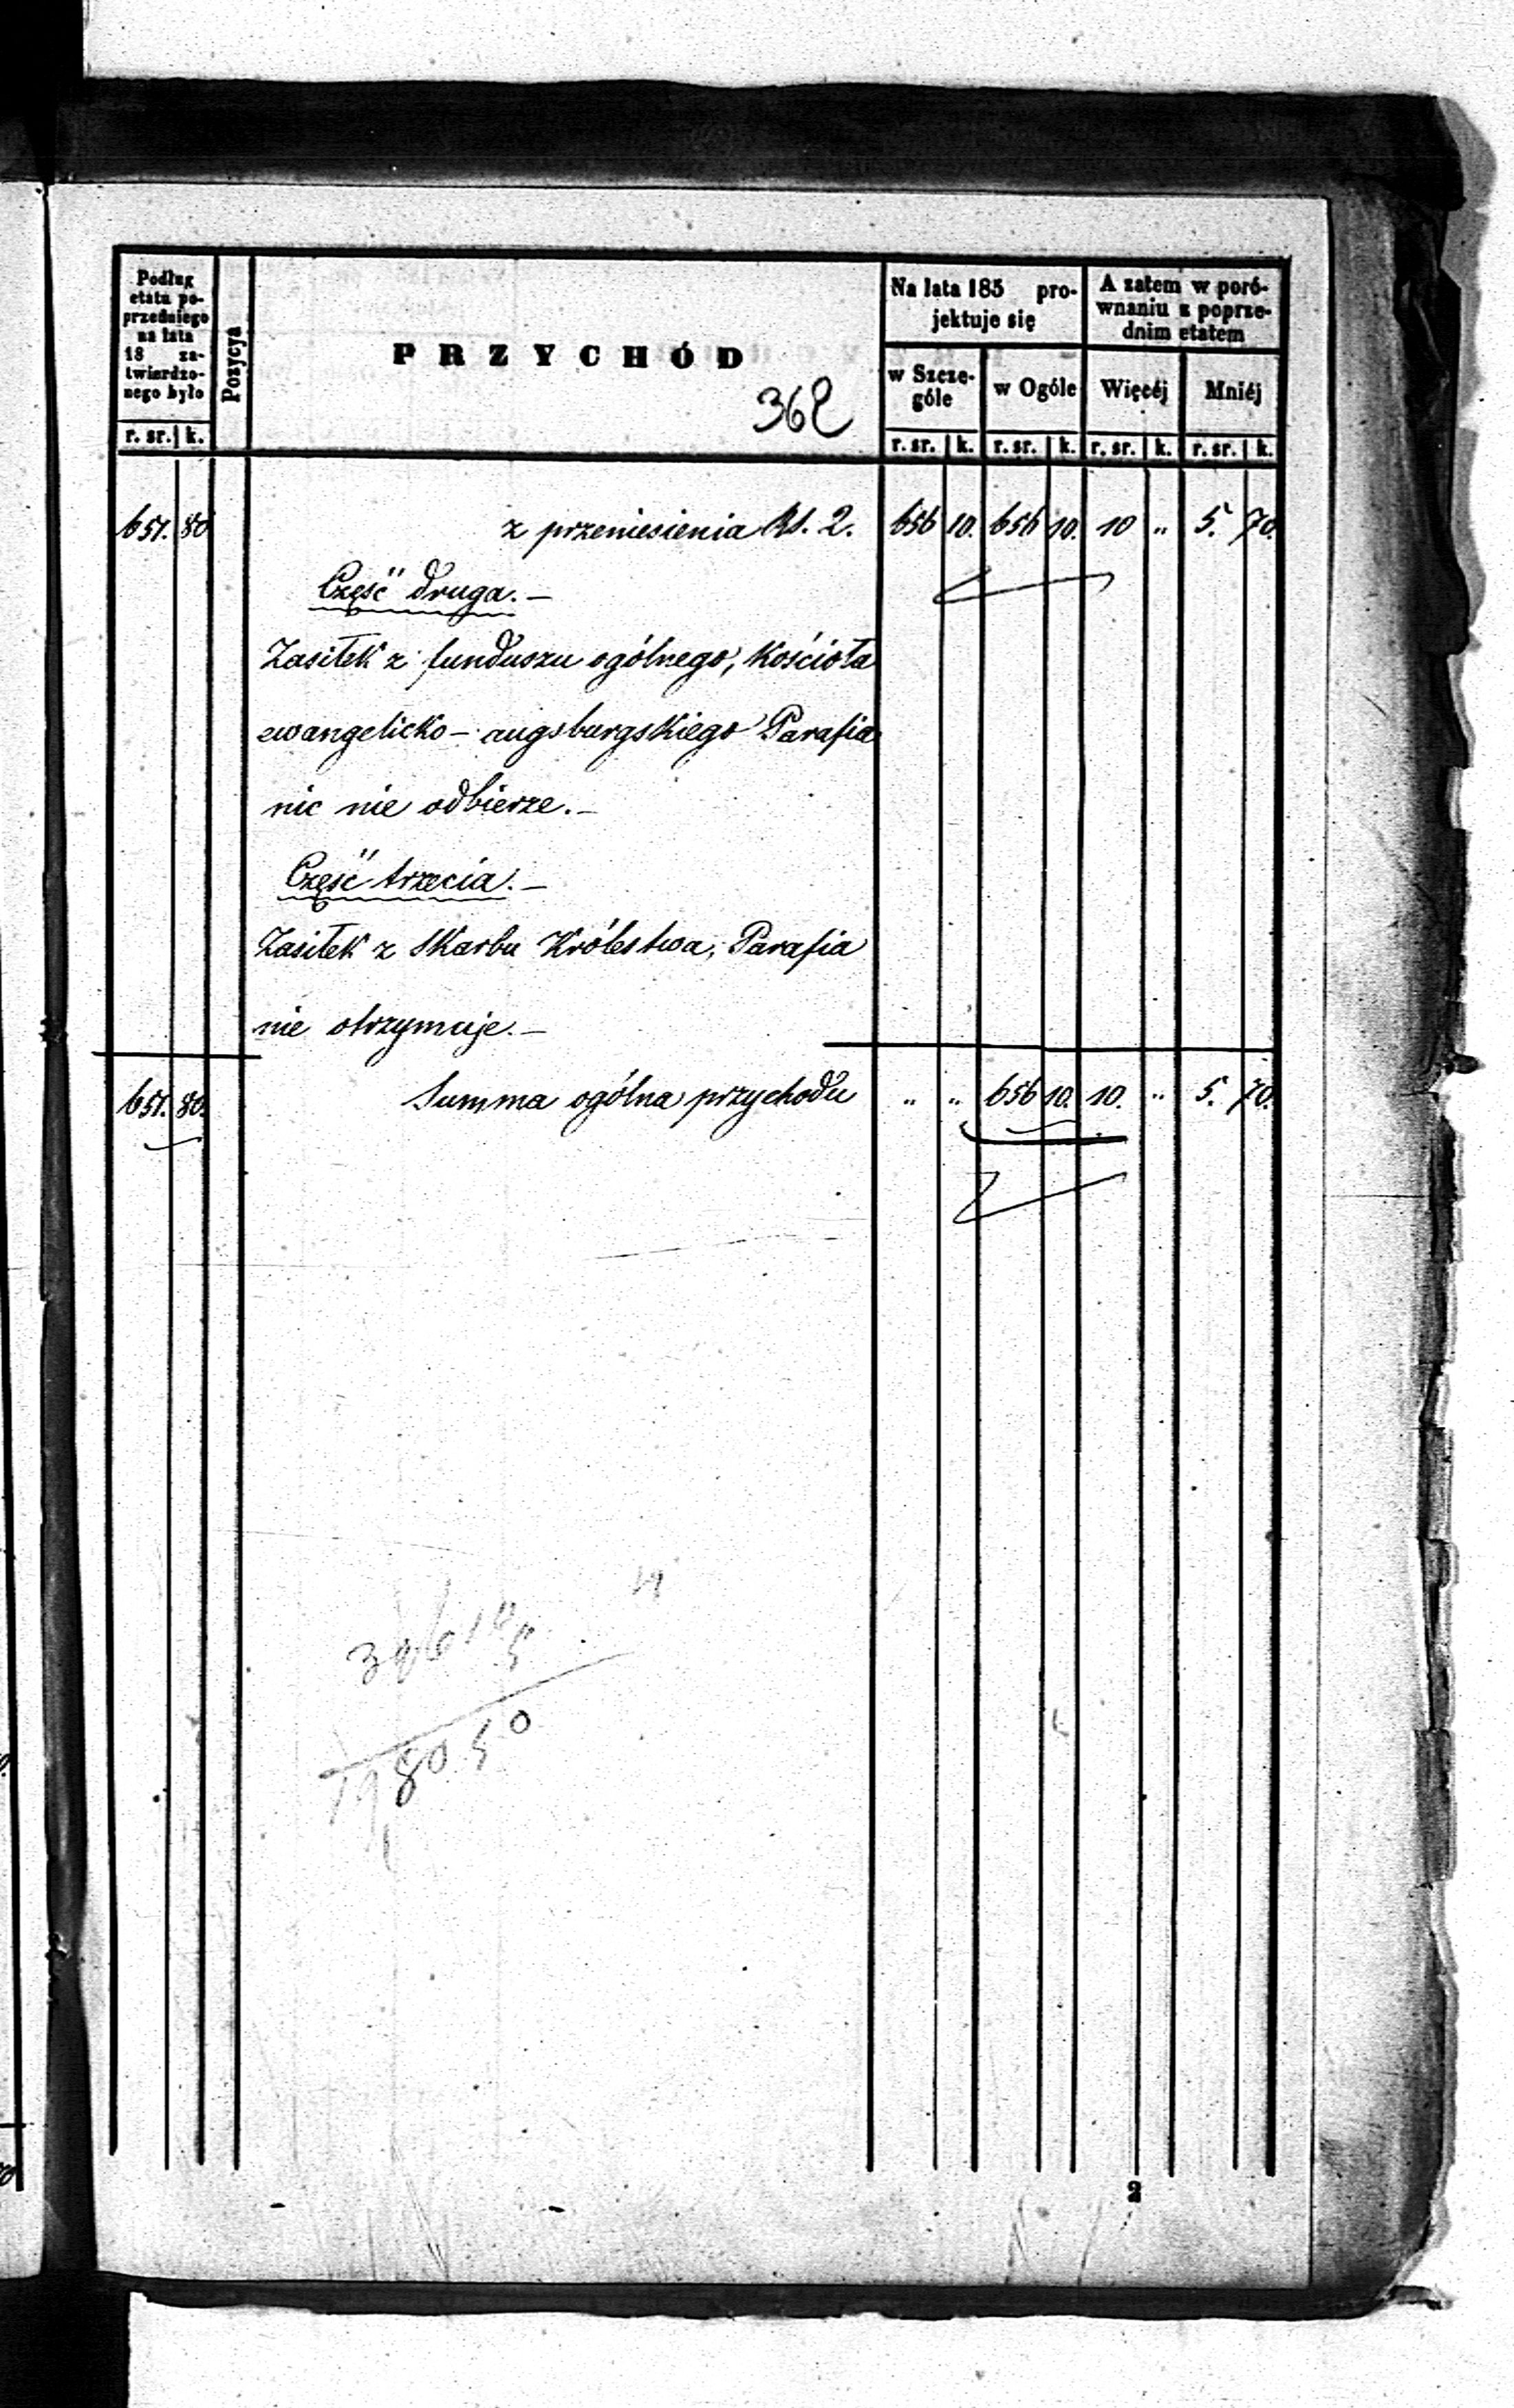 Podług
etatu po-
przedniego
na lata
18 za-
twierdzo-
nego było
r. sr. k.
Pozycya
PRZYCHÓD
362
Na lata 185 pro-
jektuje się
w Szcze-
góle
w Ogóle
A zatem w poró-
wnaniu z poprze-
dnim etatem
Więcéj
Mniéj
r. sr. k. r. sr. k. r. sr. k. r. sr. k.
651. 80 z przeniesienia Rs. 2. 656 10. 656 10. 10 " 5. 70.
Część druga. –
Zasiłek z funduszu ogólnego, Kościoła
ewangelicko – augsburgskiego Parafia
nic nie odbierze. –
Część trzecia. –
Zasiłek z Skarbu Królestwa, Parafia
nie otrzymuje. –
651. 80. Summa ogólna przychodu " " 656 10. 10. " 5. 70.
2